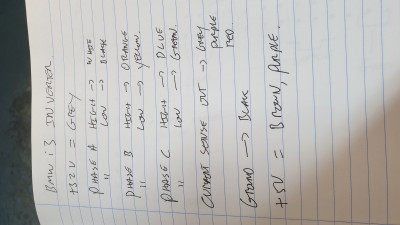 BMW i3 INVERTER
+32V = GREY
PHASE A HIGH → WHITE
" LOW → BLACK
PHASE B HIGH → ORANGE
" LOW → YELLOW.
PHASE C HIGH → BLUE
" LOW → GREEN.
CURRENT SENSE OUT → GREY
PURPLE
RED.
GROUND → BLACK
+5V = BROWN, PURPLE.